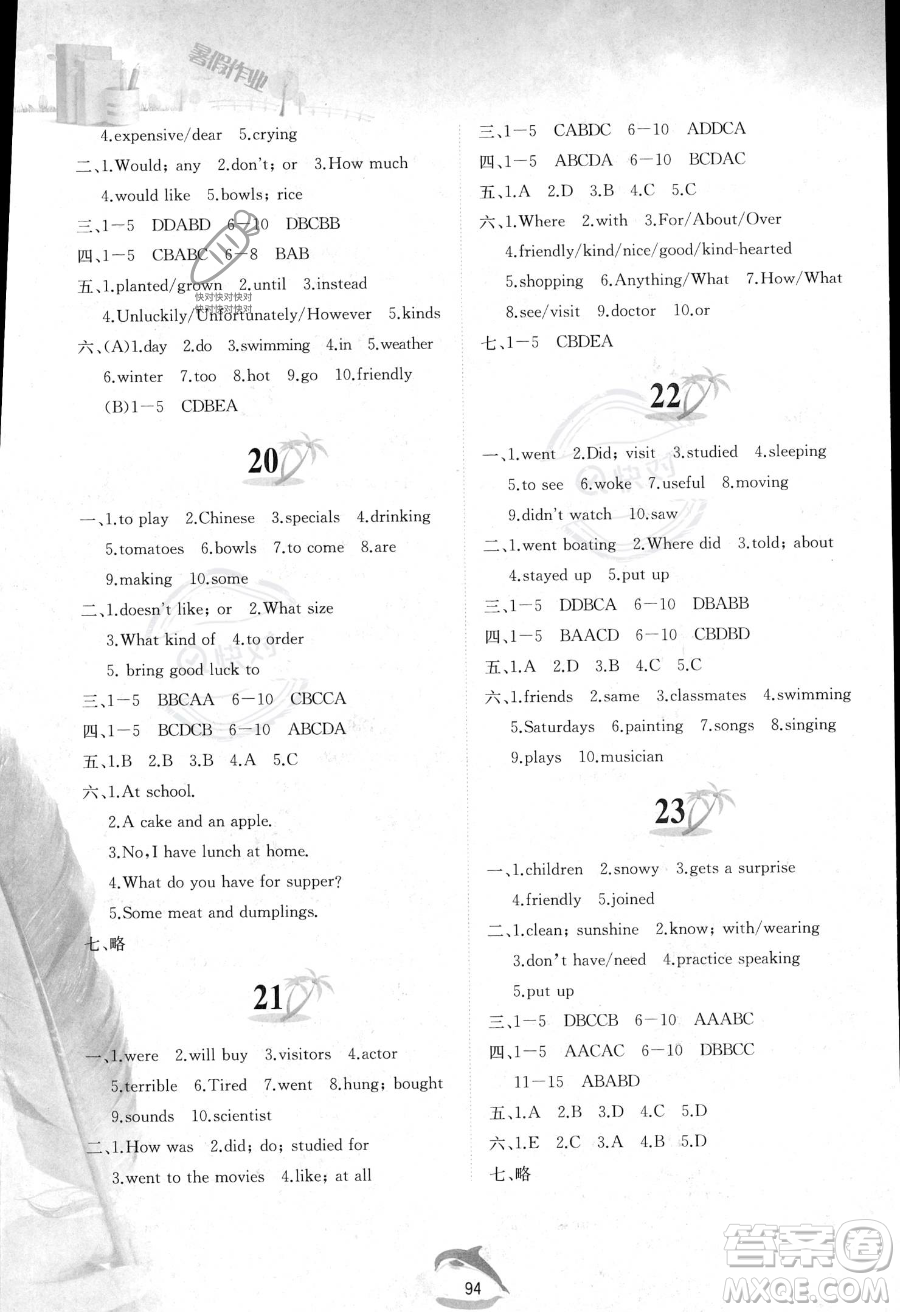 暑假作业
4.expensive/dear 5.crying
二、1.Would; any 2.don't; or 3.How much
4.would like 5.bowls; rice
三、1-5 DDABD 6-10 DBCBB
四、1-5 CBABC 6-8 BAB
五、1.planted/grown 2.until 3.instead
快对快对快对
快对快对快对
4.Unluckily/Unfortunately/However 5.kinds
六、(A)1.day 2.do 3.swimming 4.in 5.weather
6.winter 7.too 8.hot 9.go 10.friendly
(B)1-5 CDBEA
20
一、1.to play 2.Chinese 3.specials 4.drinking
5.tomatoes 6.bowls 7.to come 8.are
9.making 10.some
二、1.doesn't like; or 2.What size
3.What kind of 4.to order
5. bring good luck to
三、1-5 BBCAA 6-10 CBCCA
四、1-5 BCDCB 6-10 ABCDA
五、1.B 2.B 3.B 4.A 5.C
六、1.At school.
2.A cake and an apple.
3.No,I have lunch at home.
4.What do you have for supper?
5.Some meat and dumplings.
七、略
21
一、1.were 2.will buy 3.visitors 4.actor
5.terrible 6.Tired 7.went 8.hung; bought
9.sounds 10.scientist
二、1.How was 2.did; do; studied for
3.went to the movies 4.like; at all
三、1-5 CABDC 6-10 ADDCA
四、1-5 ABCDA 6-10 BCDAC
五、1.A 2.D 3.B 4.C 5.C
六、1.Where 2.with 3.For/About/Over
4.friendly/kind/nice/good/kind-hearted
5.shopping 6.Anything/What 7.How/What
8.see/visit 9.doctor 10.or
七、1-5 CBDEA
22
一、1.went 2.Did; visit 3.studied 4.sleeping
5.to see 6.woke 7.useful 8.moving
快对
9.didn't watch 10.saw
二、1.went boating 2.Where did 3.told; about
4.stayed up 5.put up
三、1-5 DDBCA 6-10 DBABB
四、1-5 BAACD 6-10 CBDBD
快对
五、1.A 2.D 3.B 4.C 5.C
六、1.friends 2.same 3.classmates 4.swimming
5.Saturdays 6.painting 7.songs 8.singing
9.plays 10.musician
23
一、1.children 2.snowy 3.gets a surprise
4.friendly 5.joined
二、1.clean; sunshine 2.know; with/wearing
3.don't have/need 4.practice speaking
5.put up
三、1-5 DBCCB 6-10 AAABC
四、1-5 AACAC 6-10 DBBCC
11-15 ABABD
五、1.A 2.A 3.B 4.C 5.D
六、1.E 2.C 3.A 4.B 5.D
七、略
94
答案圈
MXQE.COM